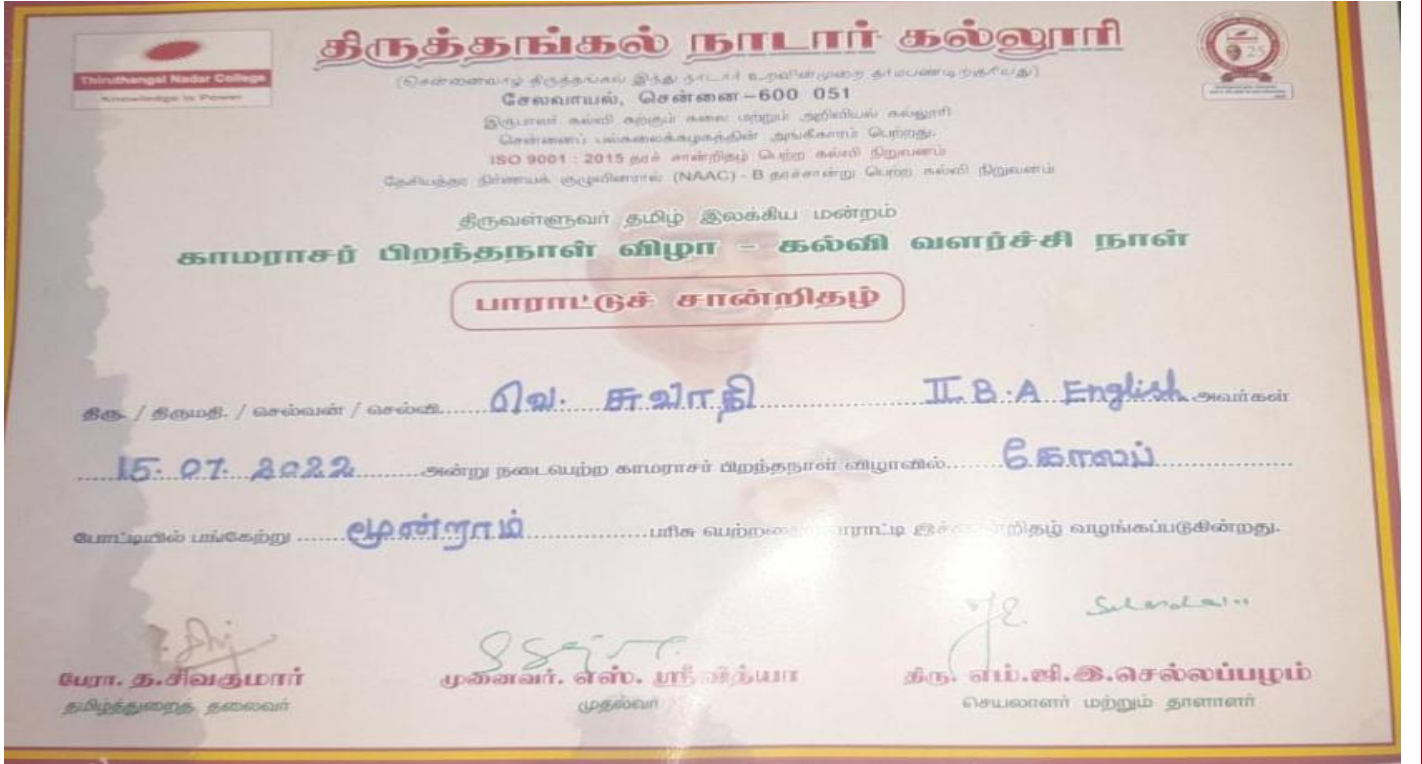 Thiruthangal Nadar College
Knowledge is Power
திருத்தங்கல் நாடார் கல்லூரி
(சென்னைவாழ் திருத்தங்கல் இந்து நாடார் உறவின்முறை தர்மபண்டிற்குரியது)
சேலவாயல், சென்னை–600 051
இருபாலர் கல்வி கற்கும் கலை மற்றும் அறிவியல் கல்லூரி
சென்னைப் பல்கலைக்கழகத்தின் அங்கீகாரம் பெற்றது.
ISO 9001 : 2015 தரச் சான்றிதழ் பெற்ற கல்வி நிறுவனம்
தேசியத்தர நிர்ணயக் குழுவினரால் (NAAC) - B தரச்சான்று பெற்ற கல்வி நிறுவனம்
25
திருவள்ளுவர் தமிழ் இலக்கிய மன்றம்
காமராசர் பிறந்தநாள் விழா – கல்வி வளர்ச்சி நாள்
பாராட்டுச் சான்றிதழ்
திரு. / திருமதி. / செல்வன் / செல்வி வெ. சுவாதி II. B.A English அவர்கள்
15. 07. 2022 அன்று நடைபெற்ற காமராசர் பிறந்தநாள் விழாவில் கோலப்
போட்டியில் பங்கேற்று மூன்றாம் பரிசு வழங்கப்படுகின்றது.
பேரா. த.சிவகுமார்
தமிழ்த்துறைத் தலைவர்
முனைவர். எஸ். ஸ்ரீ வித்யா
முதல்வர்
திரு. எம்.ஜி.இ.செல்லப்பழம்
செயலாளர் மற்றும் தாளாளர்